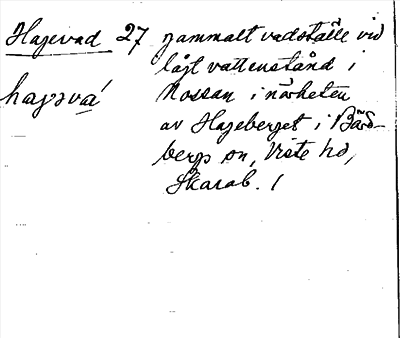 Hagevad 27 gammalt vadställe vid
lågt vattenstånd i
hagəva´ Nossan i närheten
av Hageberget i Bäre-
bergs sn, Viste hd,
Skarab. l